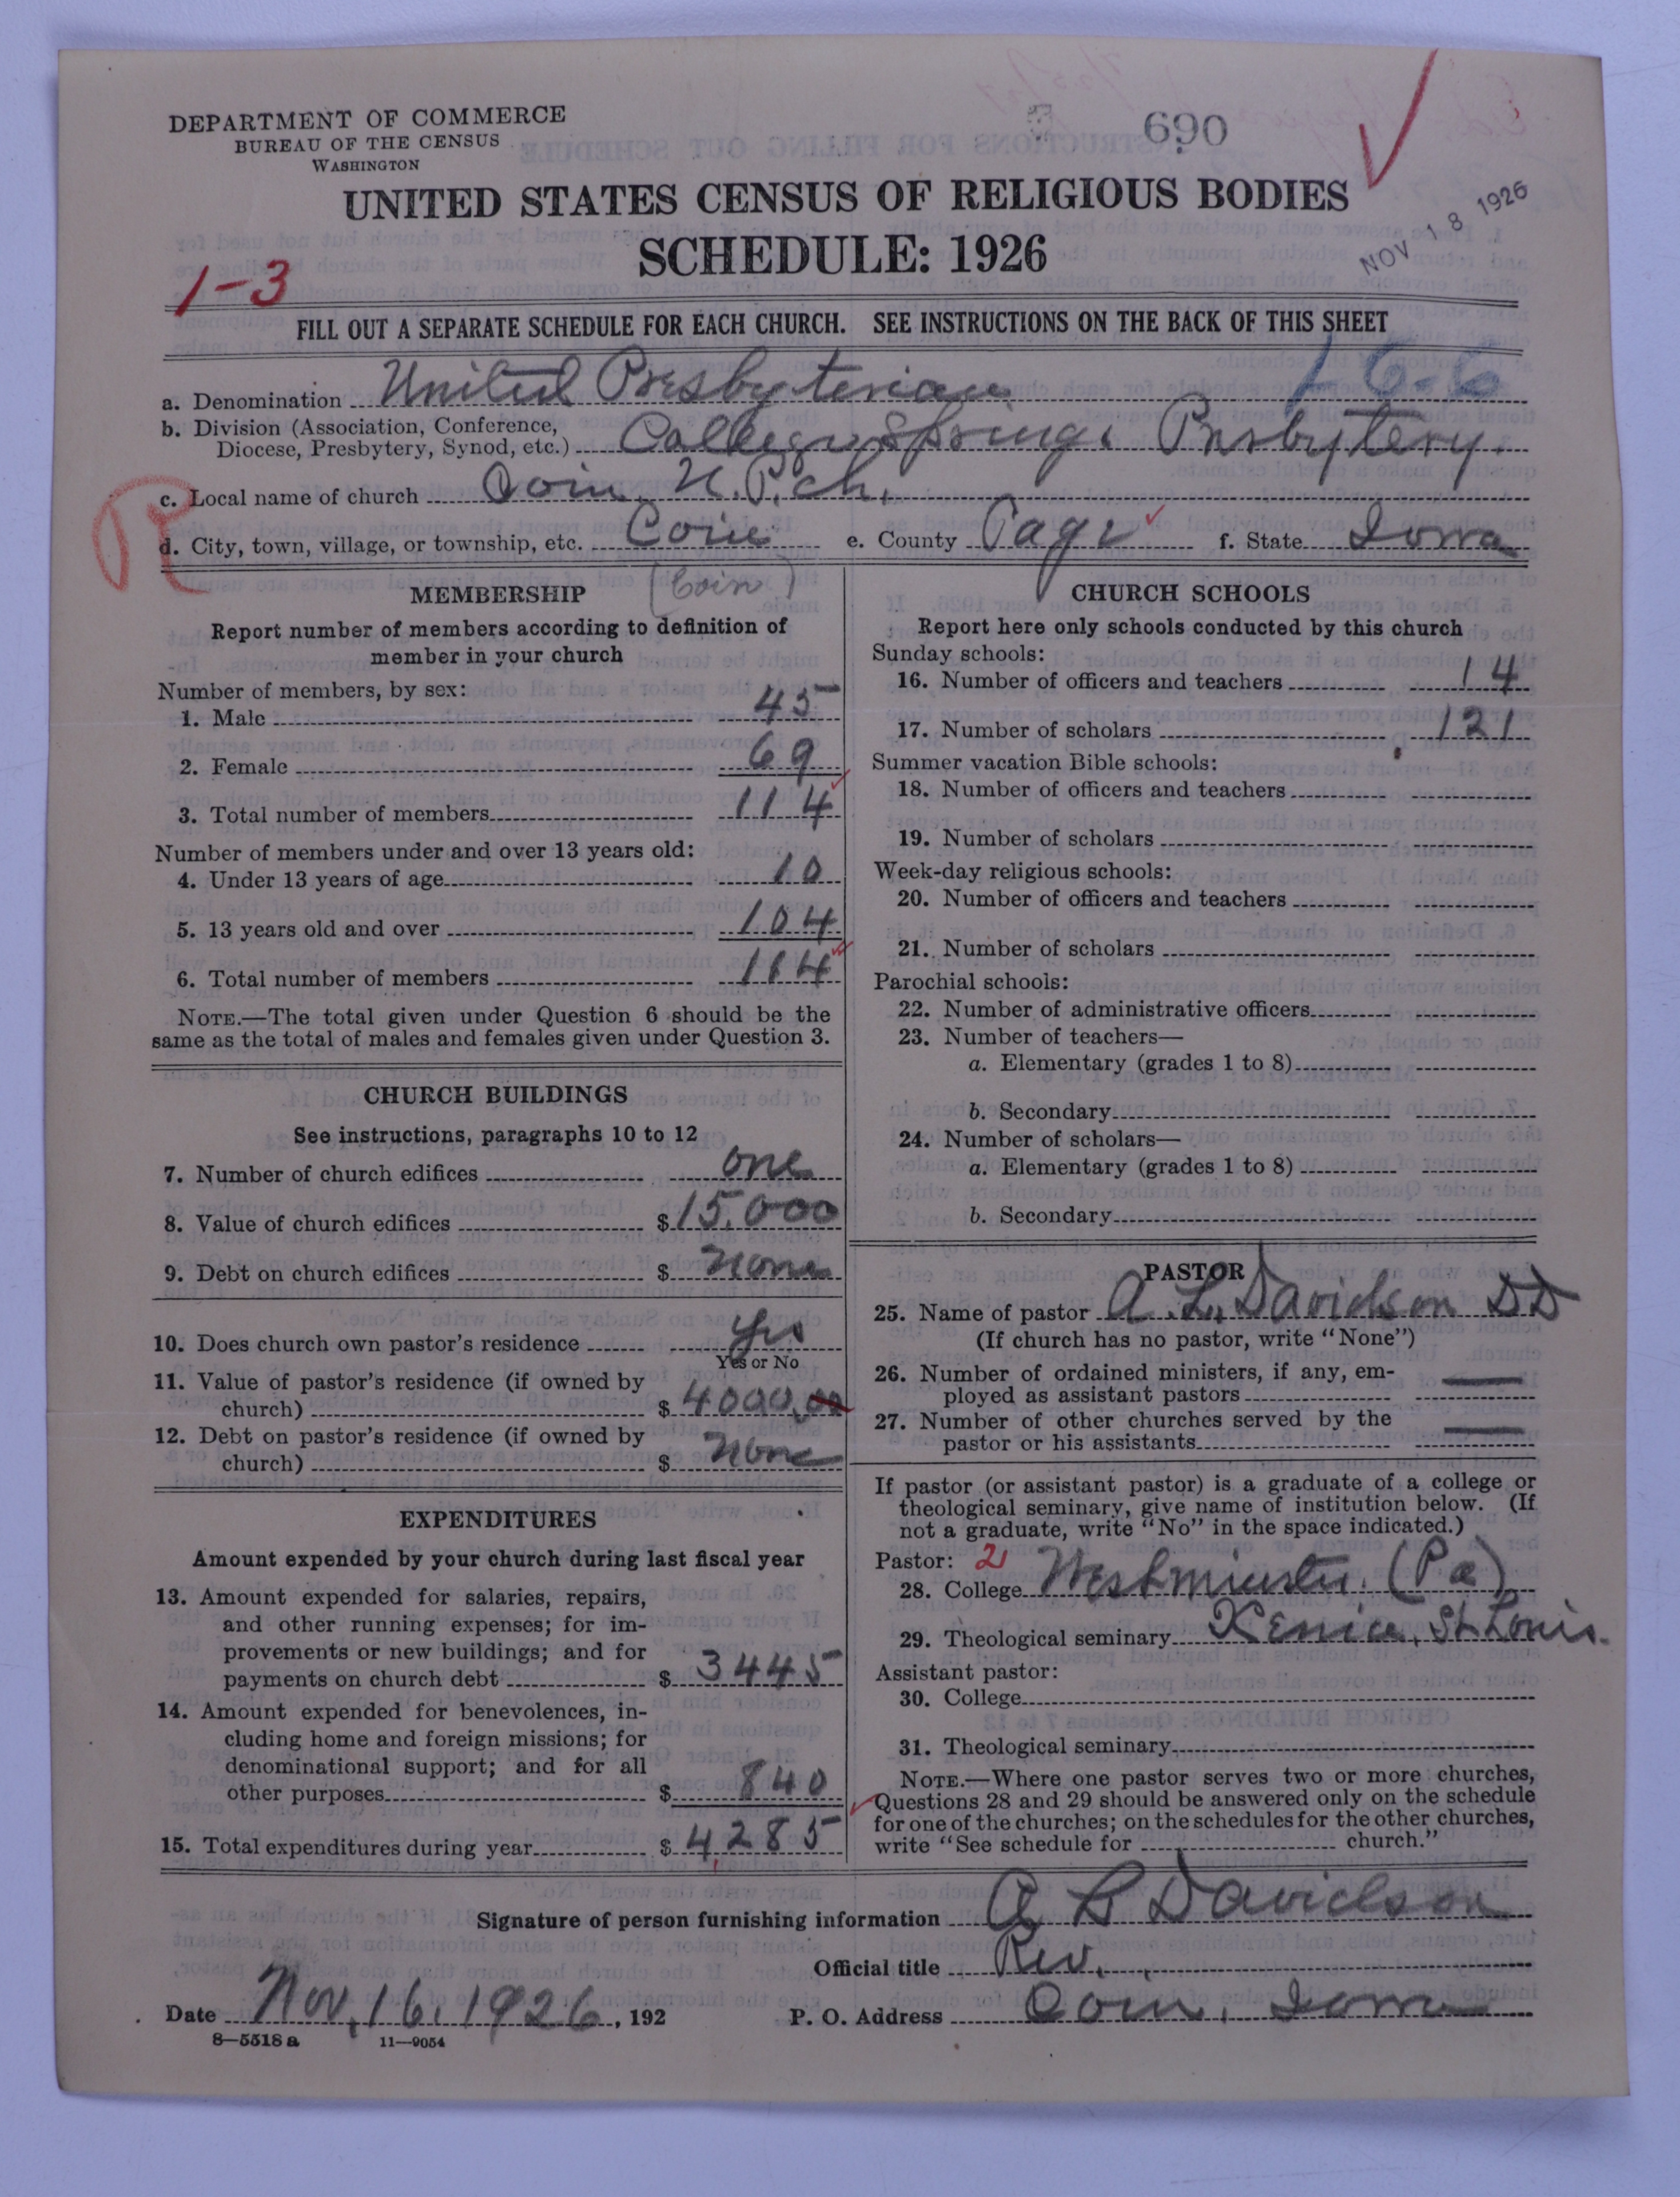 DEPARTMENT OF COMMERCE
BUREAU OF THE CENSUS
WASHINGTON
690
UNITED STATES CENSUS OF RELIGIOUS BODIES
SCHEDULE: 1926
NOV 18 1926
1-3
FILL OUT A SEPARATE SCHEDULE FOR EACH CHURCH. SEE INSTRUCTIONS ON THE BACK OF THIS SHEET
a. Denomination United Presbyterian 1-6-6
b. Division (Association, Conference,
Diocese, Presbytery, Synod, etc.) College Springs Presbytery.
c. Local name of church Coin U.P. ch.
R
d. City, town, village, or township, etc. Coin e. County Page f. State Iowa
(Coin)
MEMBERSHIP
Report number of members according to definition of
member in your church
Number of members, by sex:
1. Male 45
2. Female 69
3. Total number of members 114
Number of members under and over 13 years old:
4. Under 13 years of age 10
5. 13 years old and over 104
6. Total number of members 114
NOTE.—The total given under Question 6 should be the
same as the total of males and females given under Question 3.
CHURCH BUILDINGS
See instructions, paragraphs 10 to 12
7. Number of church edifices one
8. Value of church edifices $ 15,000
9. Debt on church edifices $ None
10. Does church own pastor's residence yes
Yes or No
11. Value of pastor's residence (if owned by
church) $ 4000,00
12. Debt on pastor's residence (if owned by
church) $ None
EXPENDITURES
Amount expended by your church during last fiscal year
13. Amount expended for salaries, repairs,
and other running expenses; for im-
provements or new buildings; and for
payments on church debt $ 3445
14. Amount expended for benevolences, in-
cluding home and foreign missions; for
denominational support; and for all
other purposes $ 840
15. Total expenditures during year $ 4,285
CHURCH SCHOOLS
Report here only schools conducted by this church
Sunday schools:
16. Number of officers and teachers 14
17. Number of scholars 121
Summer vacation Bible schools:
18. Number of officers and teachers
19. Number of scholars
Week-day religious schools:
20. Number of officers and teachers
21. Number of scholars
Parochial schools:
22. Number of administrative officers
23. Number of teachers—
a. Elementary (grades 1 to 8)
b. Secondary
24. Number of scholars—
a. Elementary (grades 1 to 8)
b. Secondary
PASTOR
25. Name of pastor A. L. Davidson DD
(If church has no pastor, write "None")
26. Number of ordained ministers, if any, em-
ployed as assistant pastors —
27. Number of other churches served by the
pastor or his assistants —
If pastor (or assistant pastor) is a graduate of a college or
theological seminary, give name of institution below. (If
not a graduate, write "No" in the space indicated.)
Pastor: 2
28. College Westminster. (Pa)
29. Theological seminary Xenia, St. Louis.
Assistant pastor:
30. College
31. Theological seminary
NOTE.—Where one pastor serves two or more churches,
Questions 28 and 29 should be answered only on the schedule
for one of the churches; on the schedules for the other churches,
write "See schedule for church."
Signature of person furnishing information A L Davidson
Official title Rev.
Date Nov, 16, 1926, 192 P. O. Address Coin, Iowa
8—5518 a 11—9054